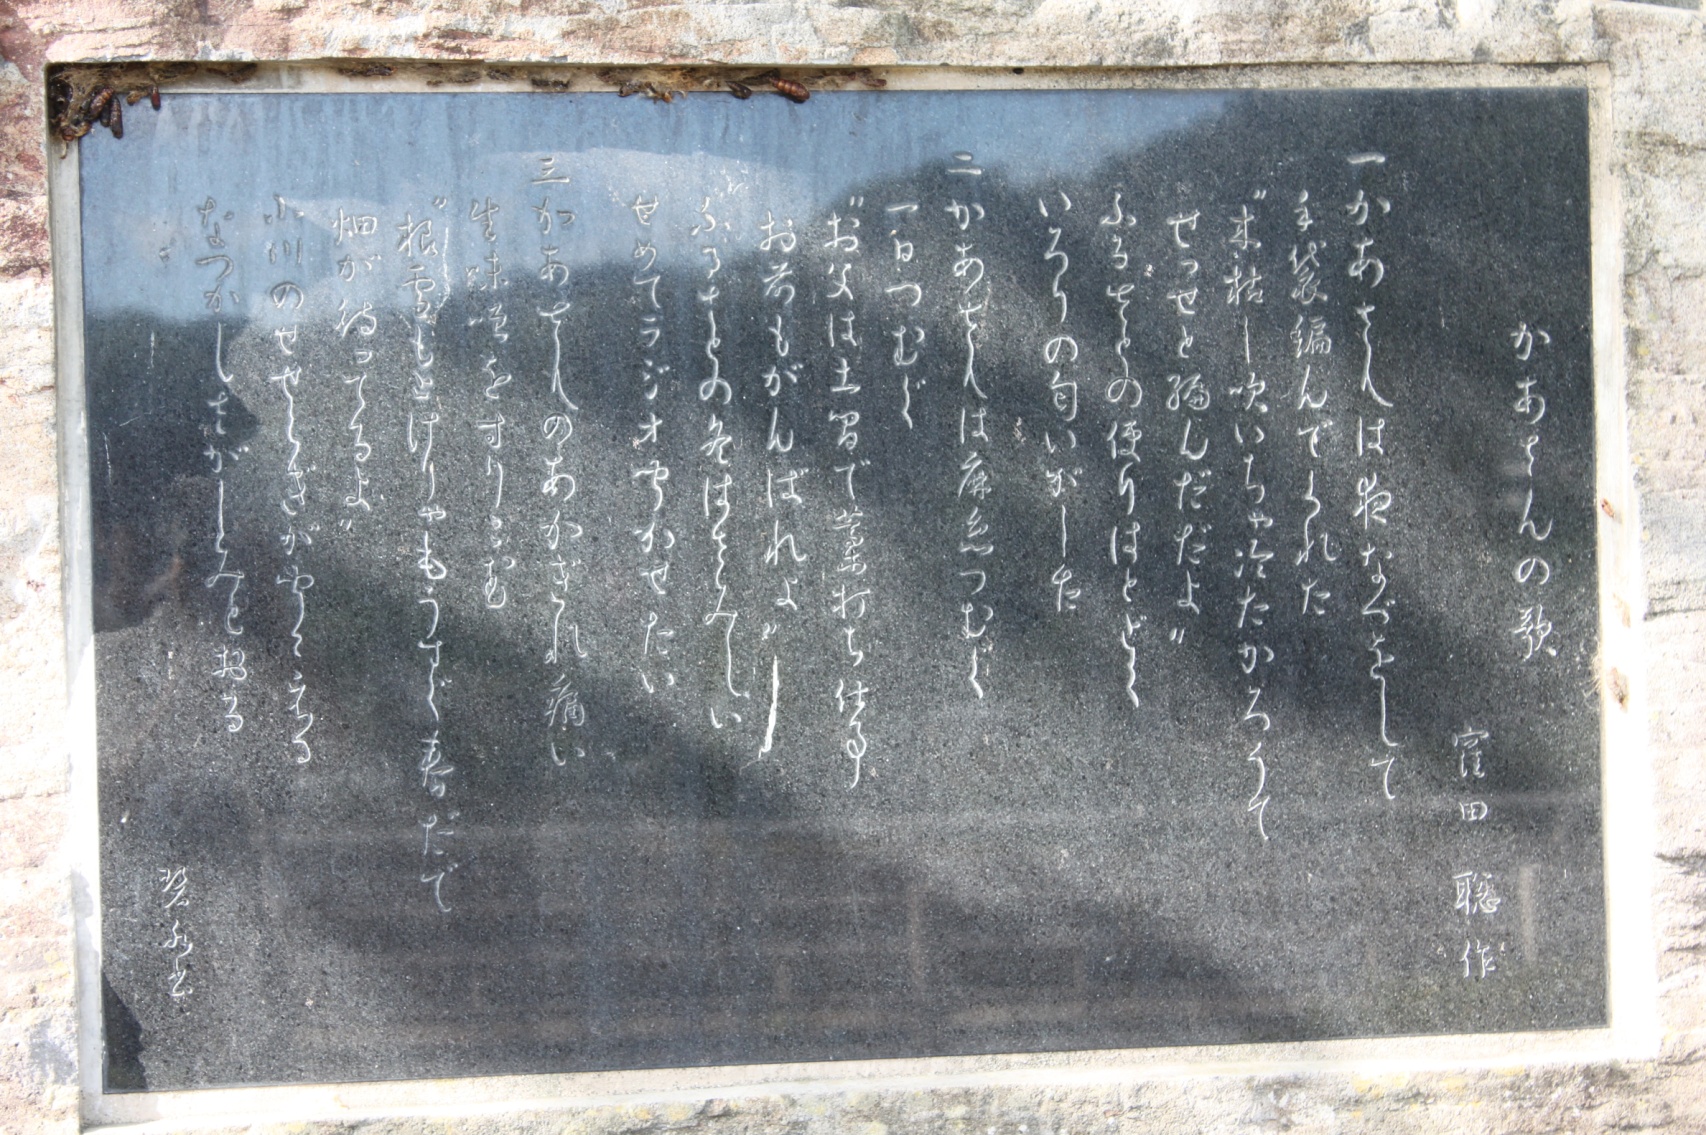 かあさんの歌
窪田 聡 作
一 かあさんは夜なべをして
手袋編んでくれた
〝木枯し吹いちゃ冷たかろうて
せっせと編んだだよ〟
ふるさとの便りはとどく
いろりの匂いがした
二 かあさんは麻糸つむぐ
一日つむぐ
〝お父は土間で藁打ち仕事
お前もがんばれよ〟
ふるさとの冬はさみしい
せめてラジオ聞かせたい
三 かあさんのあかぎれ痛い
生味噌をすりこむ
〝根雪もとけりゃもうすぐ春だで
畑が待ってるよ〟
小川のせせらぎが聞こえる
なつかしさがしみとおる
碧水書